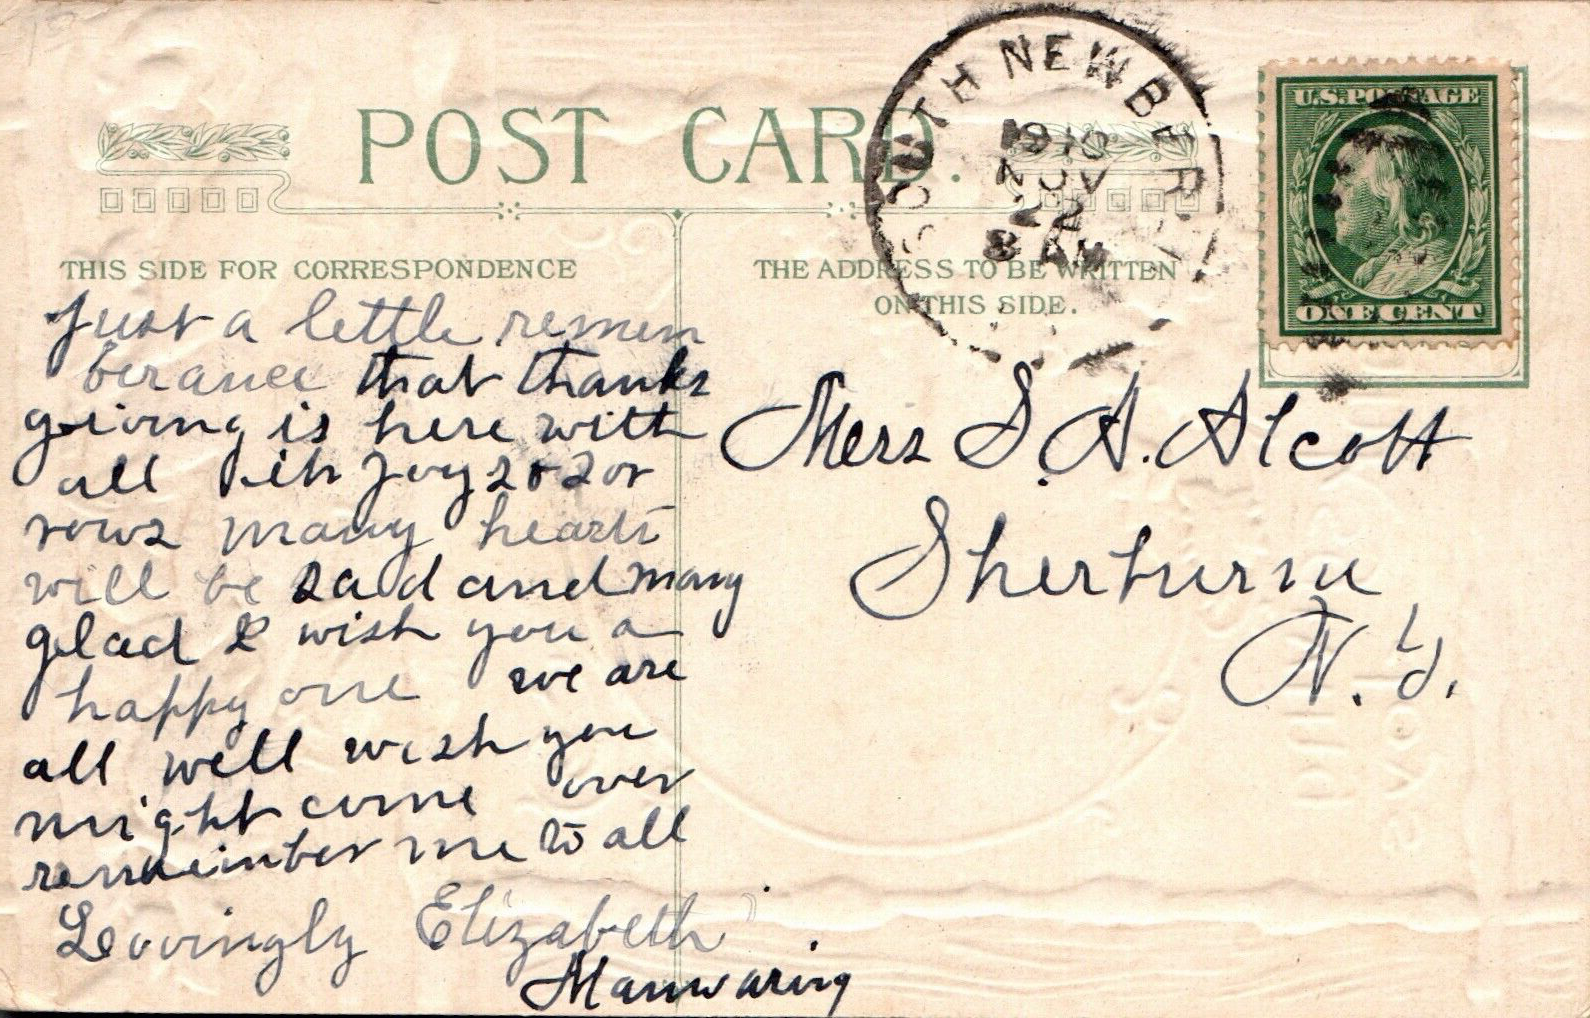 POST CARD.
SOUTH NEW BERLI
1910
NOV
22
8 AM
U.S. POSTAGE
ONE CENT
THIS SIDE FOR CORRESPONDENCE
THE ADDRESS TO BE WRITTEN
ON THIS SIDE.
Just a little remem
berance that thanks
giving is here with
all its Joys & sor
rows many hearts
will be sad and many
glad I wish you a
happy one we are
all well wish you
might come over
remember me to all
Lovingly Elizabeth
Manwaring
Mers S. A. Alcott
Sherburne
N. Y.